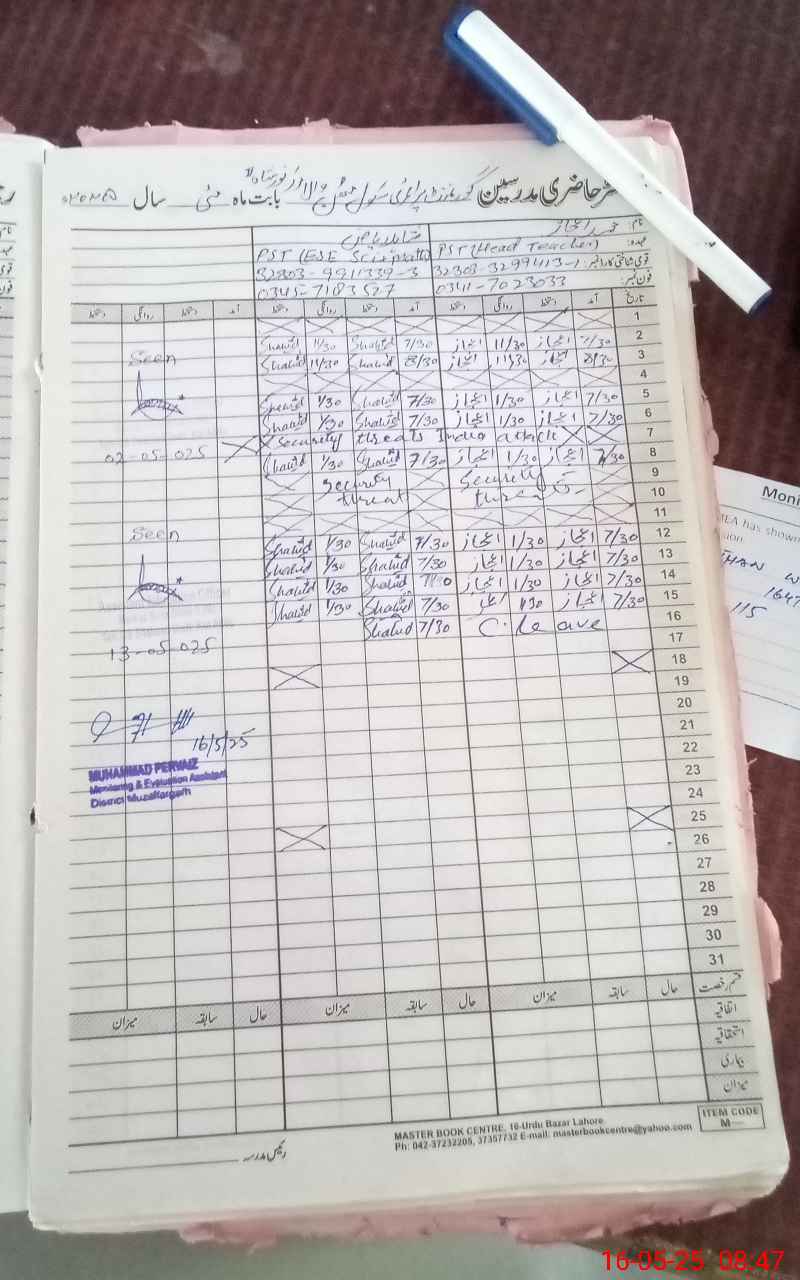 رجسٹر حاضری مدرسین گورنمنٹ پرائمری سکول والا بابت ماہ مئی سال 2025
نام:
عہدہ: PST (Head Teacher) PST (ESE Sci
قومی شناختی کارڈ نمبر: 32303-3299413-1 32303-9911339-3
فون نمبر: 0341-7023033 0345-7183527
تاریخ آمد دستخط روانگی دستخط آمد دستخط روانگی دستخط آمد دستخط روانگی دستخط
1
2 7/30 اعجاز 11/30 اعجاز 7/30 Shahid 11/30 Shahid
3 8/30 اعجاز 11/30 اعجاز 8/30 Shahid 11/30 Shahid
Seen
4
5 7/30 اعجاز 1/30 اعجاز 7/30 Shahid 1/30 Shahid
6 7/30 اعجاز 1/30 اعجاز 7/30 Shahid 1/30 Shahid
7 Security threats India attack
02-05-025
8 7/30 اعجاز 1/30 اعجاز 7/30 Shahid 1/30 Shahid
9 Security Security
10 threat threat
11
Seen
12 7/30 اعجاز 1/30 اعجاز 7/30 Shahid 1/30 Shahid
13 7/30 اعجاز 1/30 اعجاز 7/30 Shahid 1/30 Shahid
14 7/30 اعجاز 1/30 اعجاز 7/30 Shahid 1/30 Shahid
15 7/30 اعجاز 1/30 اعجاز 7/30 Shahid 1/30 Shahid
16 C. leave 7/30 Shahid
13-05-025
17
18
19
20
21
16/5/25
22
MUHAMMAD PERVAIZ
Monitoring & Evaluation Assistant
District Muzaffargarh
23
24
25
26
27
28
29
30
31
قسم رخصت حال سابقہ میزان حال سابقہ میزان حال سابقہ میزان
اتفاقیہ
استحقاقیہ
بیماری
میزان
ITEM CODE
M-
MASTER BOOK CENTRE, 16-Urdu Bazar Lahore
Ph: 042-37232205, 37357732 E-mail: masterbookcentre@yahoo.com
رئیس مدرسہ
Moni
EA has shown
sion
HAN
1647
115
16-05-25 08:47